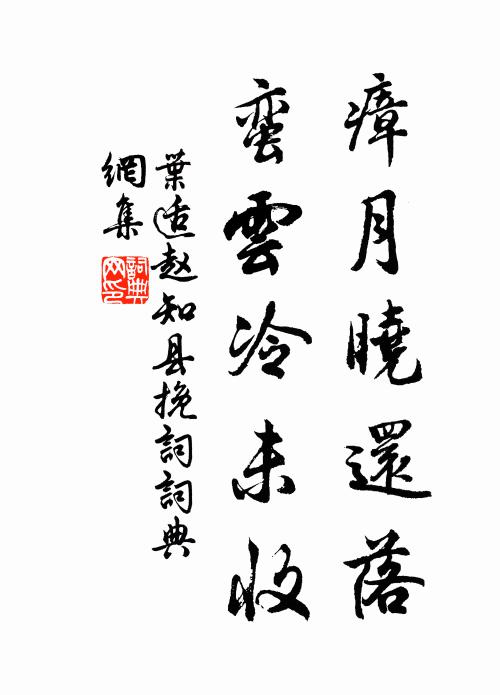 瘴月曉還落
蛮雲冷未收
葉适赵知县挽詞詞典
網集
詞典網印